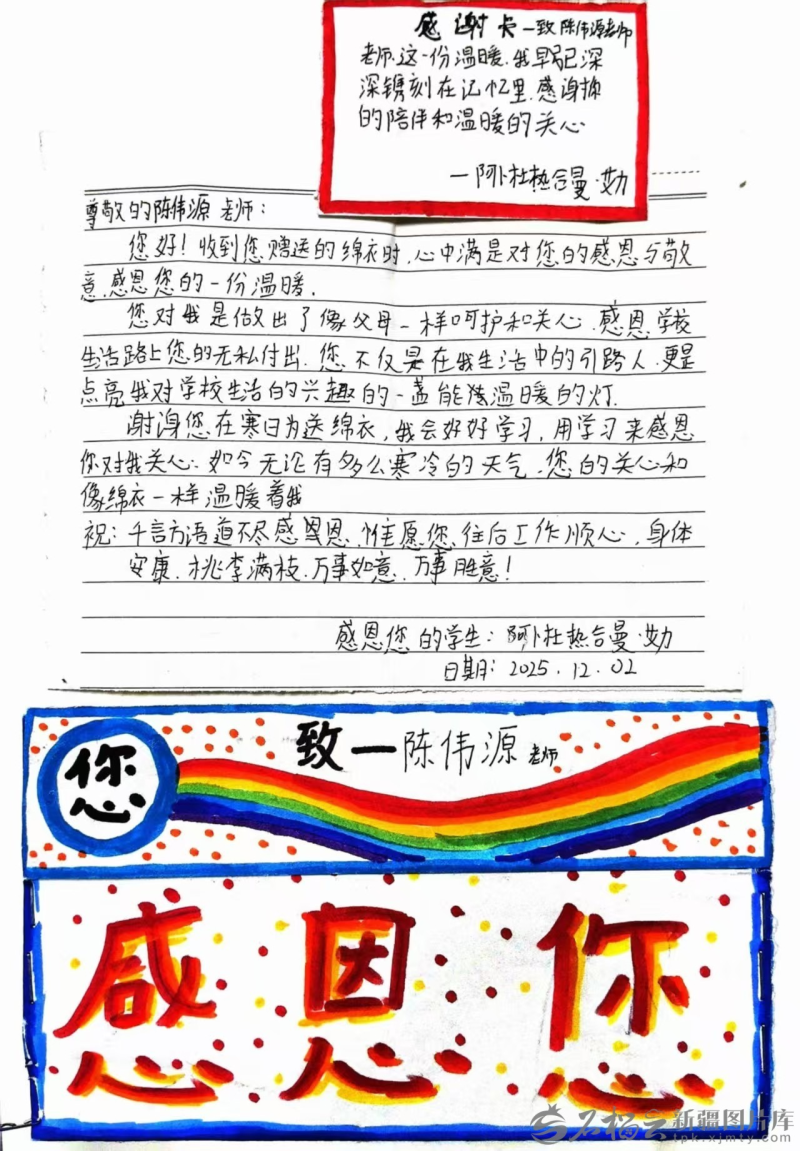 感谢卡—致陈伟源老师
老师.这一份温暖.我早已深
深镌刻在记忆里.感谢你
的陪伴和温暖的关心
—阿卜杜热合曼·艾力
尊敬的陈伟源 老师:
您好!收到您赠送的绵衣时,心中满是对您的感恩与敬
意.感恩您的一份温暖.
您对我是做出了像父母一样呵护和关心.感恩学校
生活路上您的无私付出.您不仅是在我生活中的引路人.更是
点亮我对学校生活的兴趣的一盏能温暖的灯.
谢谢您在寒日为送绵衣,我会好好学习,用学习来感恩
你对我关心.如今无论有多么寒冷的天气.您的关心和
像绵衣一样温暖着我
祝:千言万语道不尽感恩.惟愿您、往后工作顺心,身体
安康.桃李满枝.万事如意.万事胜意!
感恩您的学生:阿卜杜热合曼·艾力
日期:2025.12.02
您
致—陈伟源老师
感恩您
石榴云新疆图片库
ipk.xjmty.com